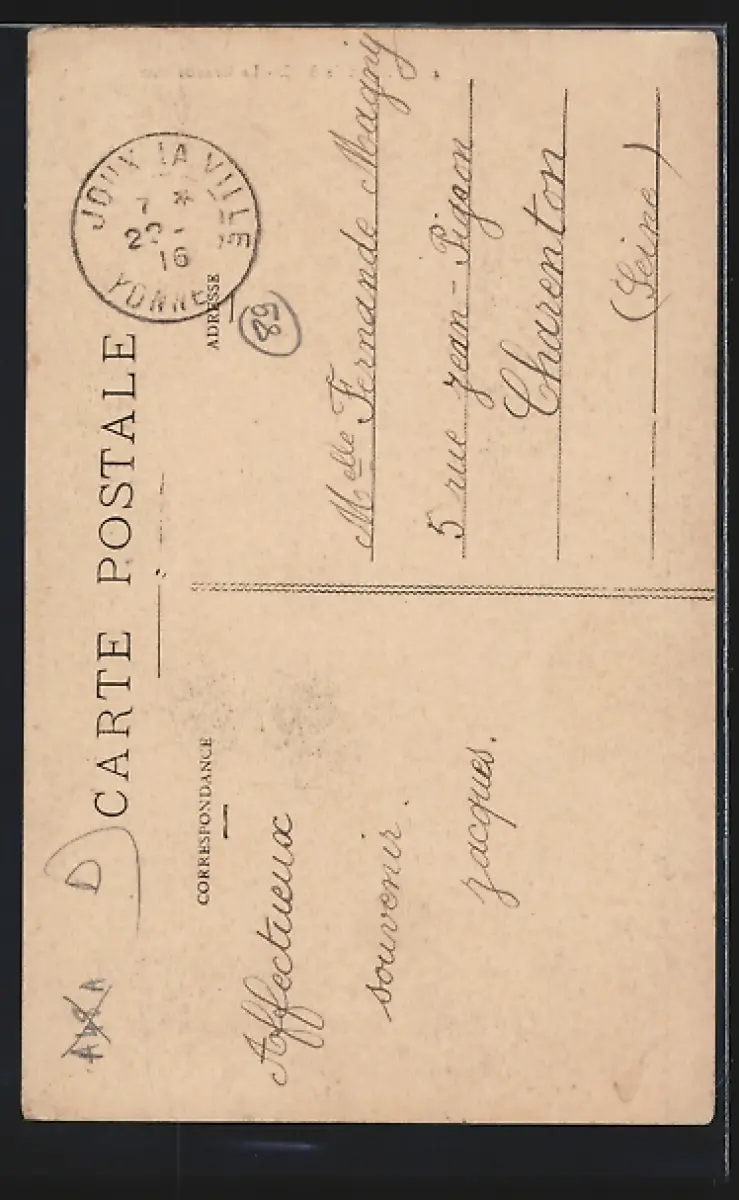 CARTE POSTALE
D
CORRESPONDANCE
Affectueux
souvenir.
Jacques.
JOUX LA VILLE
7 *
16
YONNE
ADRESSE
89
Melle Fernande Magny
5 rue Jean-Pigeon
Charenton
(Seine)